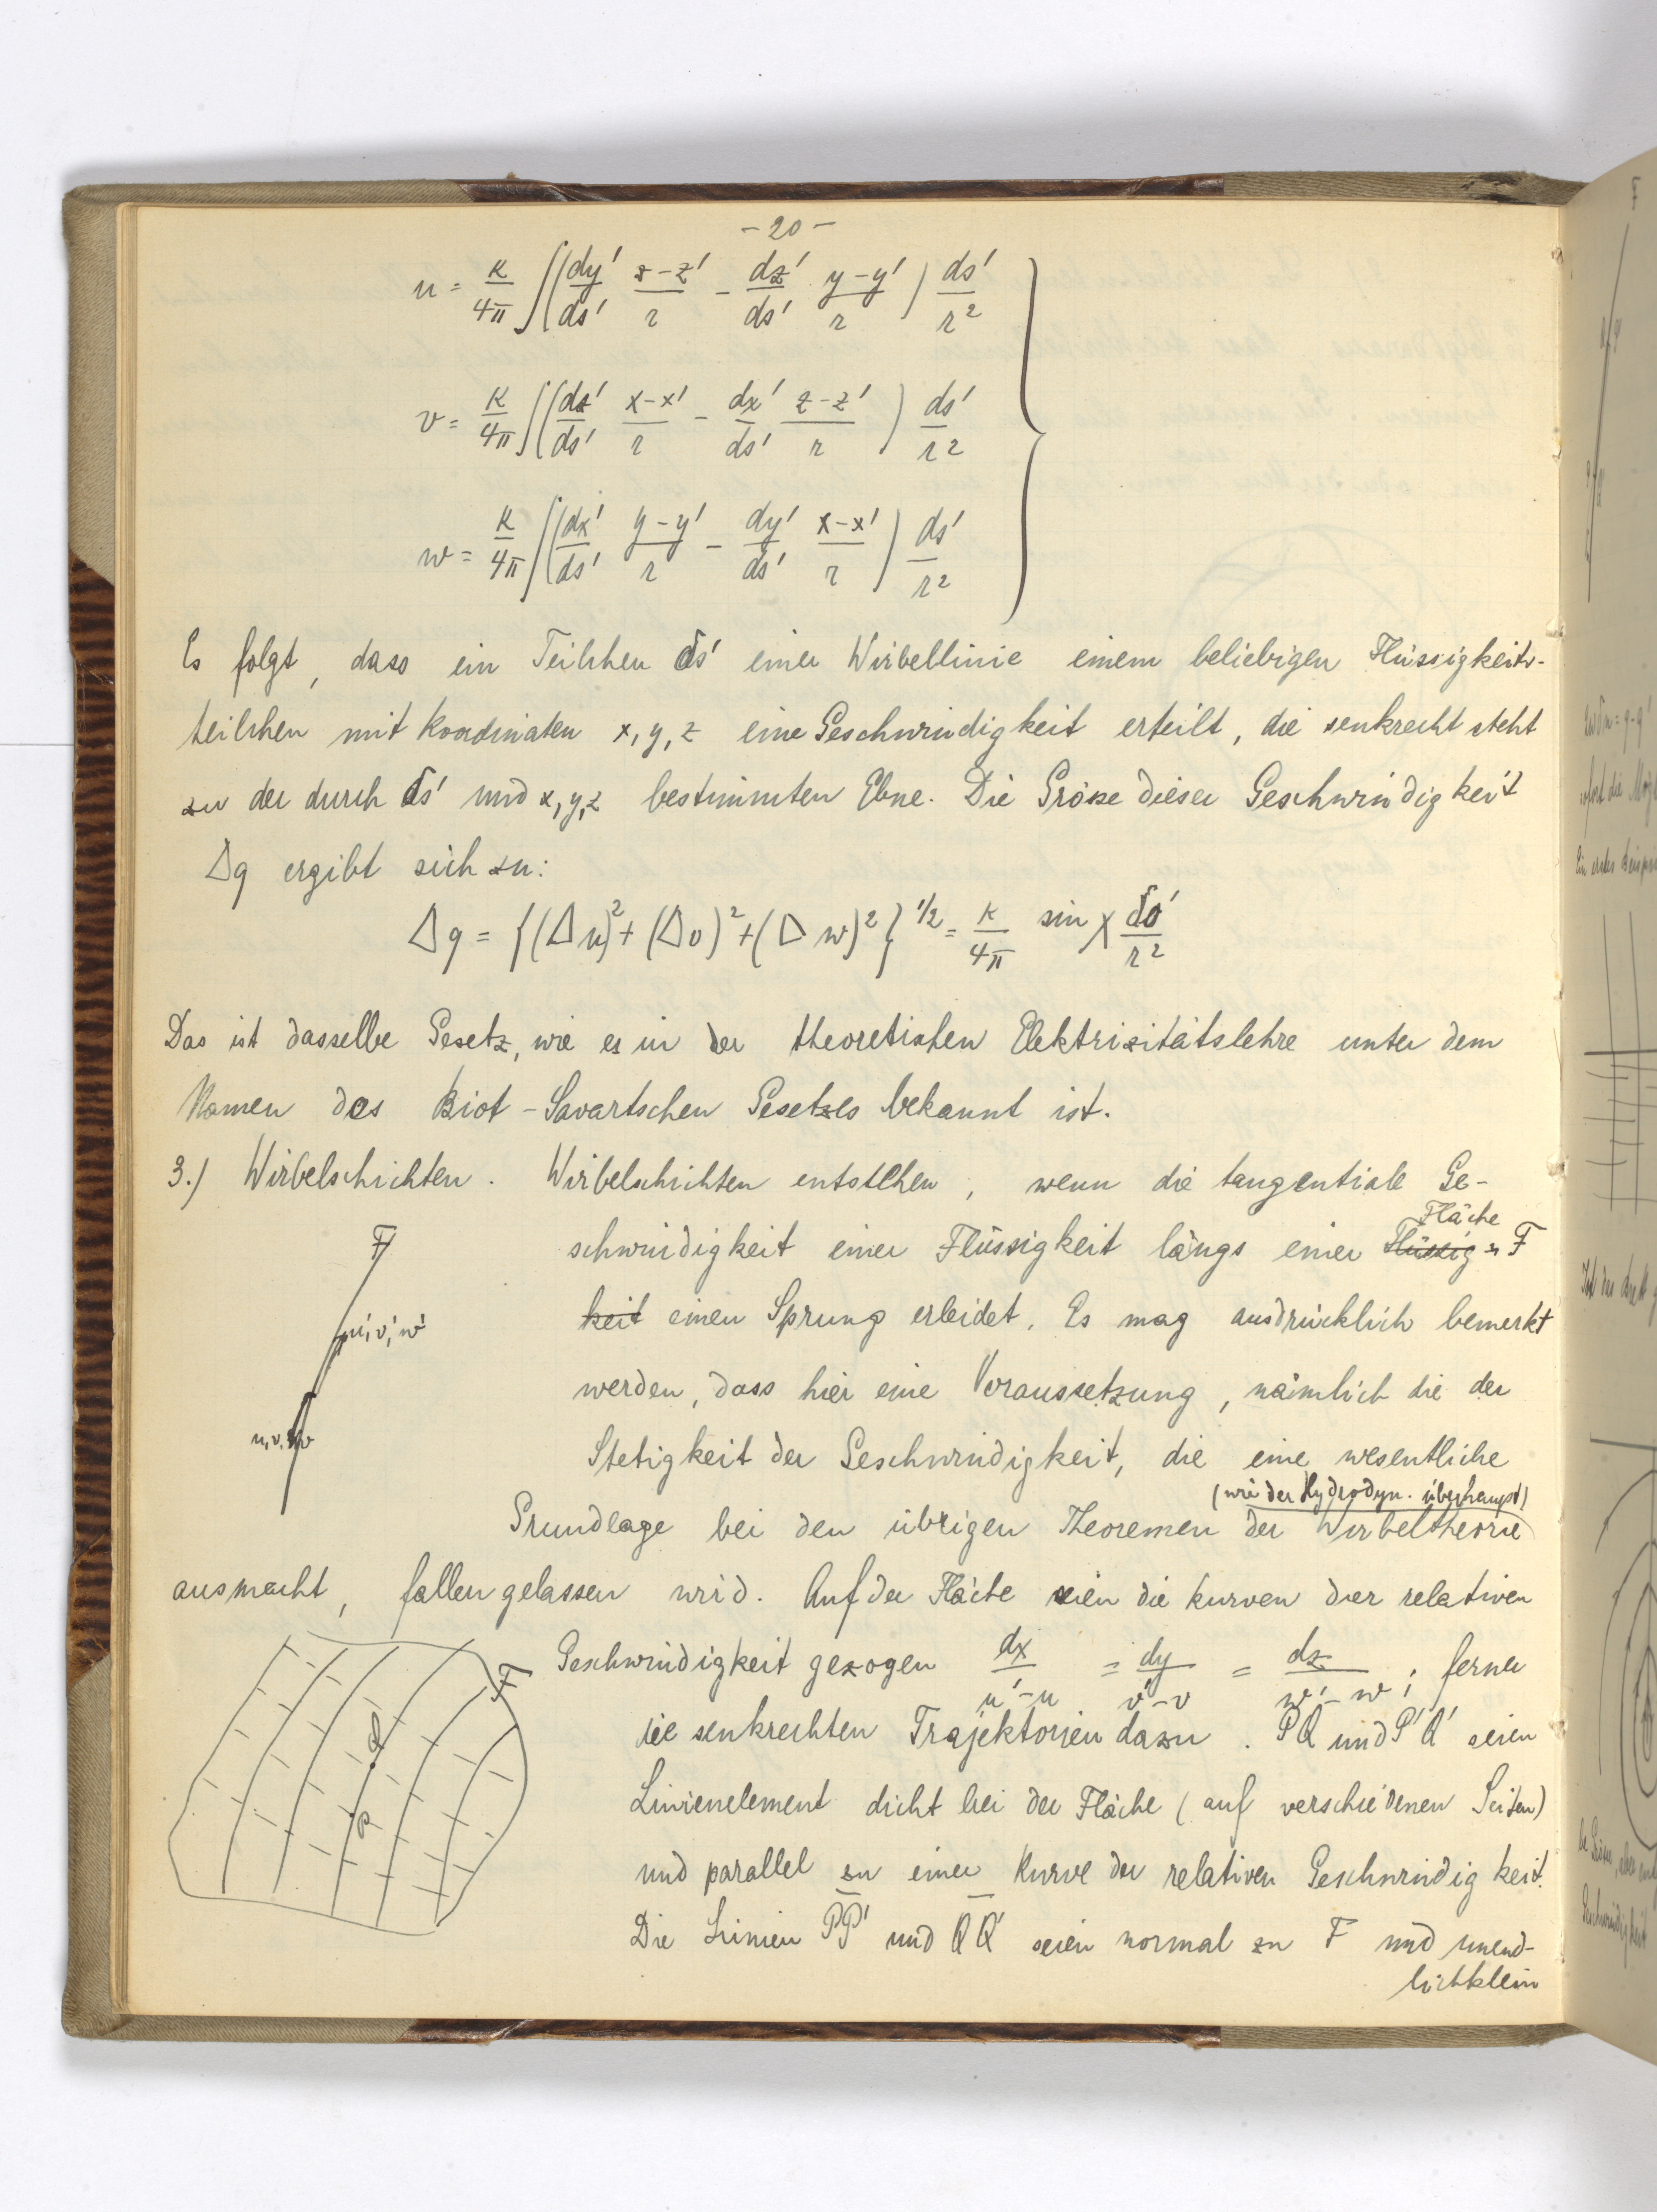 - 20 -
u = κ/4π ∫(dy'/ds' z-z'/r - dz'/ds' y-y'/r) ds'/r²
v = κ/4π ∫(dz'/ds' x-x'/r - dx'/ds' z-z'/r) ds'/r²
w = κ/4π ∫(dx'/ds' y-y'/r - dy'/ds' x-x'/r) ds'/r²
Es folgt, dass ein Teilchen δs' einer Wirbellinie einem beliebigen Flüssigkeits-
teilchen mit Koordinaten x, y, z eine Geschwindigkeit erteilt, die senkrecht steht
zu der durch δs' und x, y, z bestimmten Ebne. Die Grösse dieser Geschwindigkeit
Δq ergibt sich zu:
Δq = {(Δu)² + (Δv)² + (Δw)²}^1/2 = κ/4π sin χ δs'/r²
Das ist dasselbe Gesetz, wie es in der theoretischen Elektrizitätslehre unter dem
Namen des Biot-Savartschen Gesetzes bekannt ist.
3.) Wirbelschichten. Wirbelschichten entstehen, wenn die tangentiale Ge-
Fläche
schwindigkeit einer Flüssigkeit längs einer Flüssig- F
keit einen Sprung erleidet. Es mag ausdrücklich bemerkt
werden, dass hier eine Voraussetzung, nämlich die der
Stetigkeit der Geschwindigkeit, die eine wesentliche
(wie der Hydrodyn. überhaupt)
Grundlage bei den übrigen Theoremen der Wirbeltheorie
ausmacht, fallen gelassen wird. Auf der Fläche seien die Kurven der relativen
Geschwindigkeit gezogen dx/u'-u = dy/v'-v = dz/w'-w ; ferner
die senkrechten Trajektorien dazu. PQ und P'Q' seien
Linienelement dicht bei der Fläche (auf verschiedenen Seiten)
und parallel zu einer Kurve der relativen Geschwindigkeit.
Die Linien PP' und QQ' seien normal zu F und unend-
lichklein
F
u', v', w'
u, v, w
F
Q
P